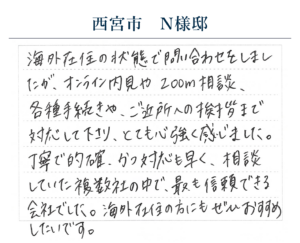 西宮市　N様邸
海外在住の状態で問い合わせをしまし
たが、オンライン内見やZOOM相談、
各種手続きや、ご近所への挨拶まで
対応して下さり、とても心強く感じました。
丁寧で的確、かつ対応も早く、相談
していた複数社の中で、最も信頼できる
会社でした。海外在住の方にもぜひおすすめ
したいです。